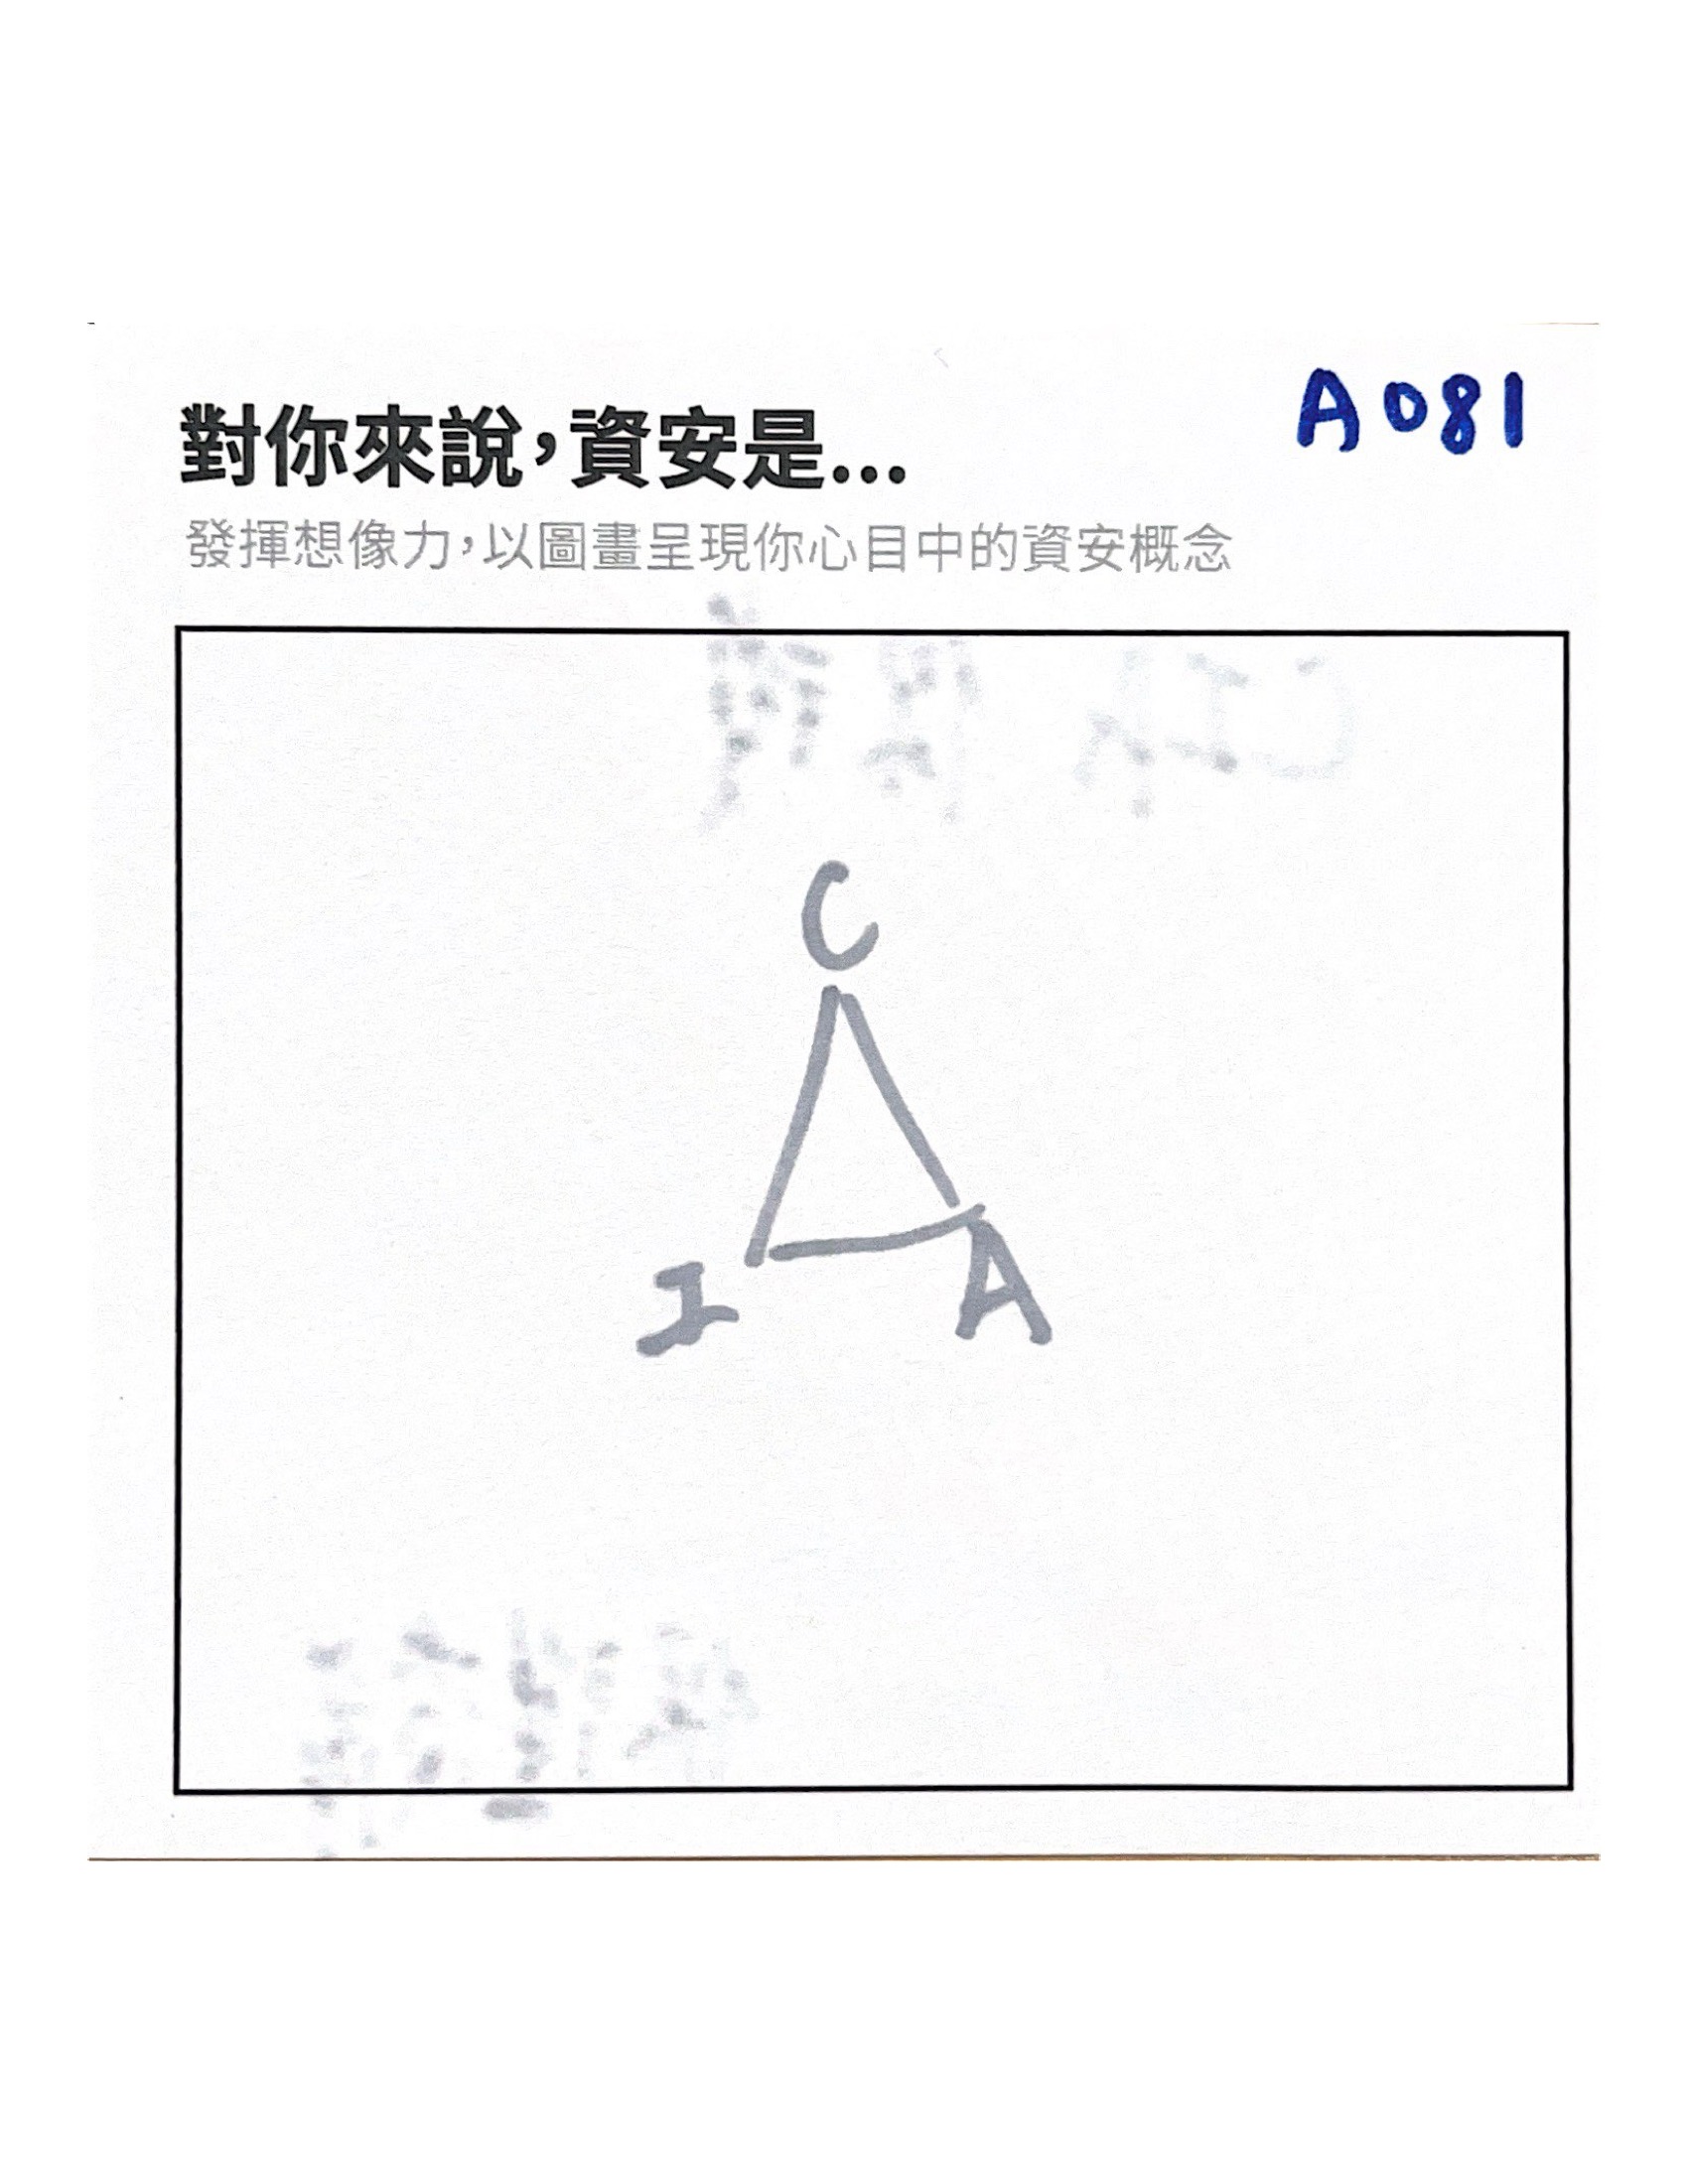 A081
對你來說，資安是...
發揮想像力，以圖畫呈現你心目中的資安概念
C
I A